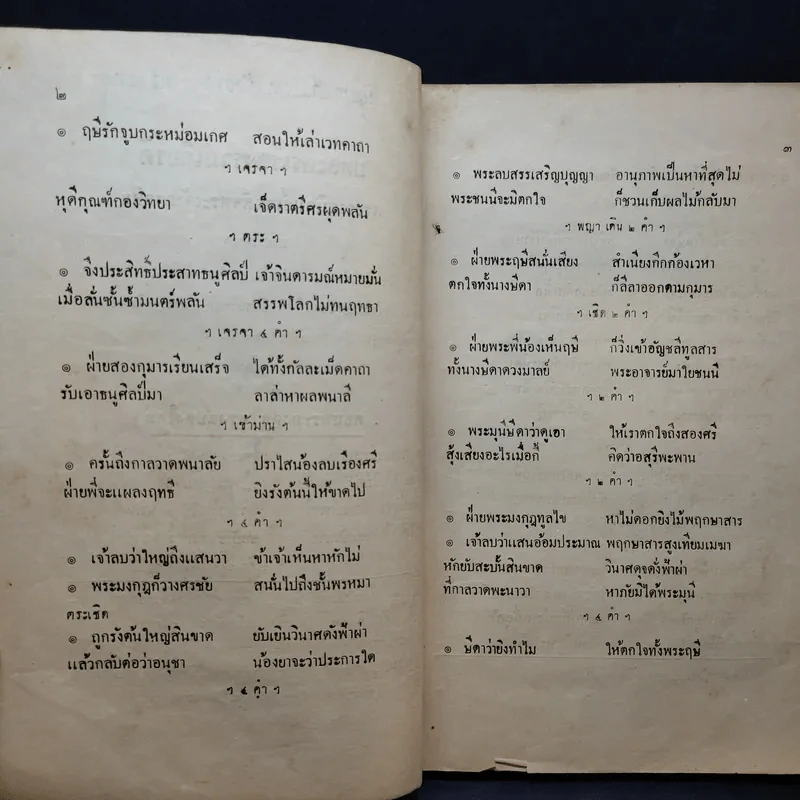 ๒
๏ ฤษีรักจูบกระหม่อมเกศ สอนให้เล่าเวทคาถา
ฯ เจรจา ฯ
หุดีกุณฑ์กองวิทยา เจ็ดราตรีศรผุดพลัน
ฯ ตระ ฯ
๏ จึงประสิทธิ์ประสาทธนูศิลป์ เจ้าจินดารมณ์หมายมั่น
เมื่อลั่นซั้นซ้ำมนตร์พลัน สรรพโลกไม่ทนฤทธา
ฯ เจรจา ๔ คำ ฯ
๏ ฝ่ายสองกุมารเรียนเสร็จ ได้ทั้งกัลละเม็ดคาถา
รับเอาธนูศิลป์มา ลาล่าหาผลพนาลี
ฯ เข้าม่าน ฯ
๏ ครั้นถึงกาลวาดพนาลัย ปราไสน้องลบเรืองศรี
ฝ่ายพี่จะแผลงฤทธี ยิงรังต้นนี้ให้ขาดไป
ฯ ๔ คำ ฯ
๏ เจ้าลบว่าใหญ่ถึงแสนวา ข้าเจ้าเห็นหาหักไม่
๏ พระมงกุฎก็วางศรชัย สนั่นไปถึงชั้นพรหมา
ตระเชิด
๏ ถูกรังต้นใหญ่สินขาด ยับเยินวินาศดังฟ้าผ่า
แล้วกลับต่อว่าอนุชา น้องยาจะว่าประการใด
ฯ ๔ คำ ฯ
๓
๏ พระลบสรรเสริญบุญญา อานุภาพเป็นหาที่สุดไม่
พระชนนีจะมิตกใจ ก็ชวนเก็บผลไม้กลับมา
ฯ พญาเดิน ๒ คำ ฯ
๏ ฝ่ายพระฤษีสนั่นเสียง สำเนียงกึกก้องเวหา
ตกใจทั้งนางษีดา ก็ลีลาออกตามกุมาร
ฯ เชิด ๒ คำ ฯ
๏ ฝ่ายพระพี่น้องเห็นฤษี ก็วิ่งเข้าอัญชลีทูลสาร
ทั้งนางษีดาดวงมาลย์ พระอาจารย์มาใยชนนี
ฯ ๒ คำ ฯ
๏ พระมุนีษีดาว่าดูเอา ให้เราตกใจถึงสองศรี
สุ้งเสียงอะไรเมื่อกี้ คิดว่าอสุรีพะพาน
ฯ ๒ คำ ฯ
๏ ฝ่ายพระมงกุฎทูลไข หาไม่ดอกยิงไม้พฤกษาสาร
๏ เจ้าลบว่าแสนอ้อมประมาณ พฤกษาสารสูงเทียมเมฆา
หักยับสะบั้นสินขาด วินาศดุจดั่งฟ้าผ่า
ที่กาลวาดพะนาวา หาภัยมิได้พระมุนี
ฯ ๔ คำ ฯ
๏ ษีดาว่ายิงทำไม ให้ตกใจทั้งพระฤษี